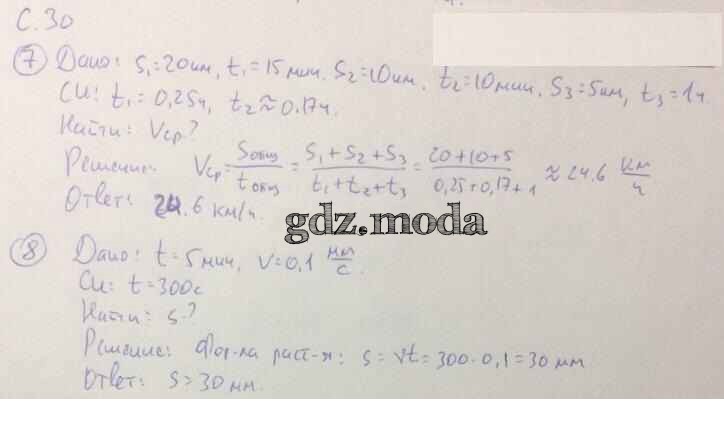 С. 30
⑦ Дано: S₁=20км, t₁=15мин. S₂=10км. t₂=10мин. S₃=5км, t₃=1ч.
Си: t₁=0,25ч, t₂≈0,17ч.
Найти: Vср?
Решение: Vср=Sобщ/tобщ=(S₁+S₂+S₃)/(t₁+t₂+t₃)=(20+10+5)/(0,25+0,17+1)≈24.6 км/ч
Ответ: 24.6 км/ч.
gdz.moda
⑧ Дано: t=5мин, v=0,1 мм/с.
Си: t=300с
Найти: s-?
Решение: Фор-ла раст-я: s=vt=300·0,1=30 мм
Ответ: s=30мм.